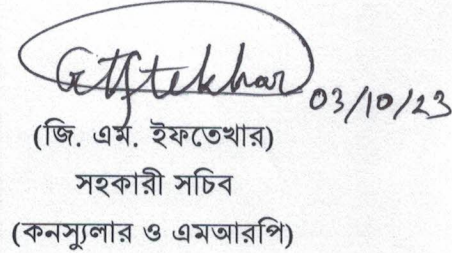 GIftekhar 03/10/23
(জি. এম. ইফতেখার)
সহকারী সচিব
(কনস্যুলার ও এমআরপি)